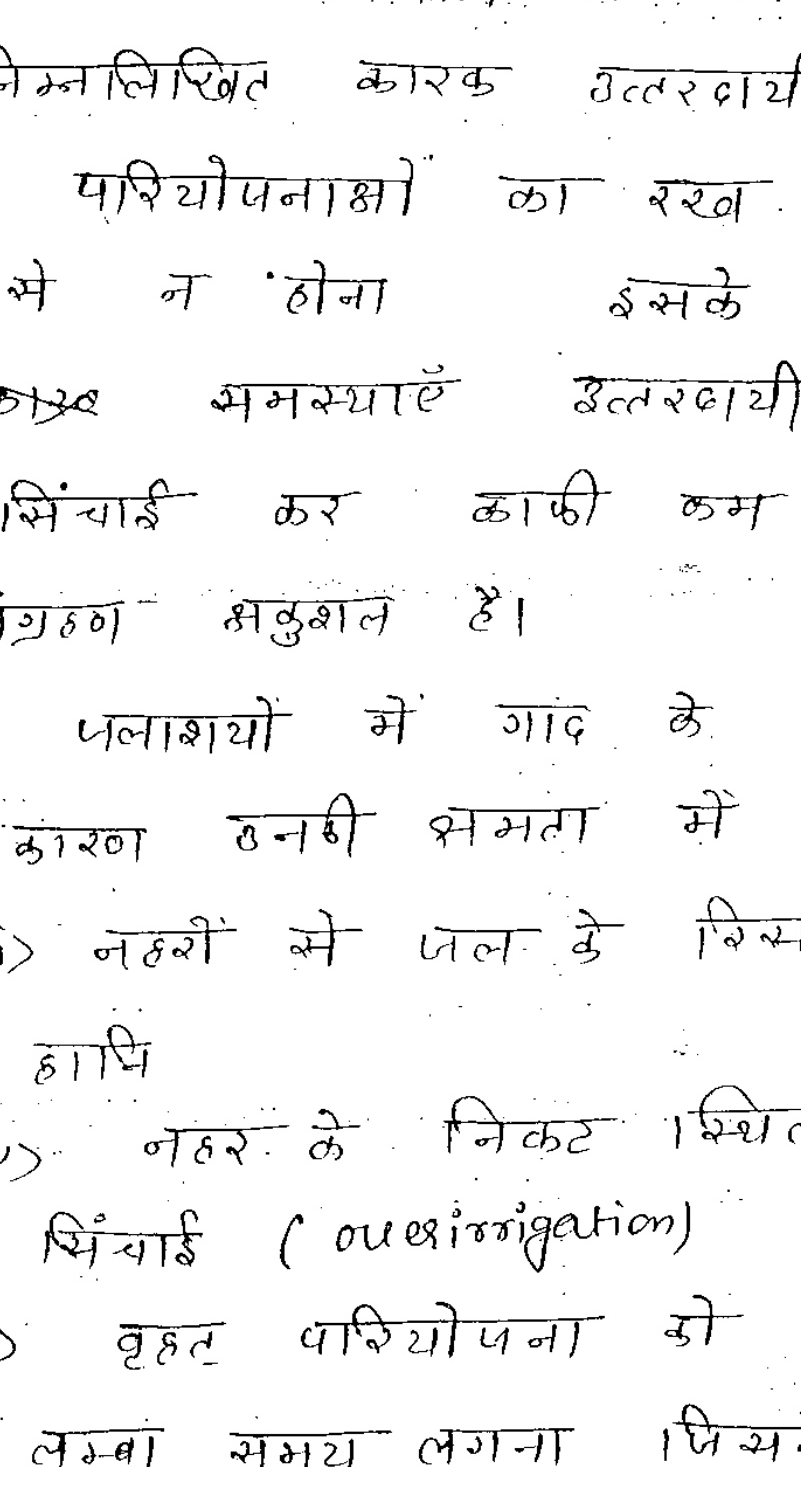 निम्नलिखित कारक उत्तरदायी
परियोजनाओं का रख
से न होना इसके
समस्याएँ उत्तरदायी
सिंचाई कर काफी कम
ग्रहण अकुशल है।
जलाशयों में गाद के
कारण उनकी क्षमता में
नहरों से जल के रिस
हानि
नहर के निकट स्थित
सिंचाई (overirrigation)
वृहत परियोजना को
लम्बा समय लगना जिस